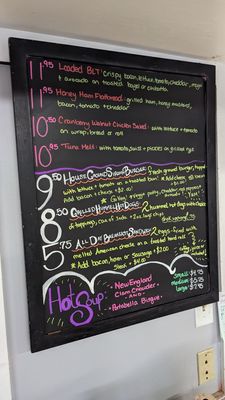 11.95 Loaded BLT: crispy bacon, lettuce, tomato, cheddar, mayo
+ avocado on toasted bagel or ciabatta.
11.95 Honey Ham Flatbread: grilled ham, honey mustard,
bacon, tomato + cheddar
10.50 Cranberry Walnut Chicken Salad: with lettuce + tomato
on wrap, bread or roll
10.95 Tuna Melt: with tomato, swiss + pickles on grilled rye
9.50 House Ground Sirloin Burger: fresh ground burger, topped
with lettuce + tomato on a toasted bun.
bacon + check $2.00
8.50 Grilled Hummel Hot Dogs: 2
toppings,
5.75 All Day Breakfast Sandwich: 2 eggs-fried with
melted American cheese on a toasted hard roll
* Add bacon, ham or sausage * $2.00
Steak - $4.00
Hot Soup:
New England
Clam Chowder
- AND -
Portabella Bisque
Small: $4.95
Medium: $5.95
Large: $7.95